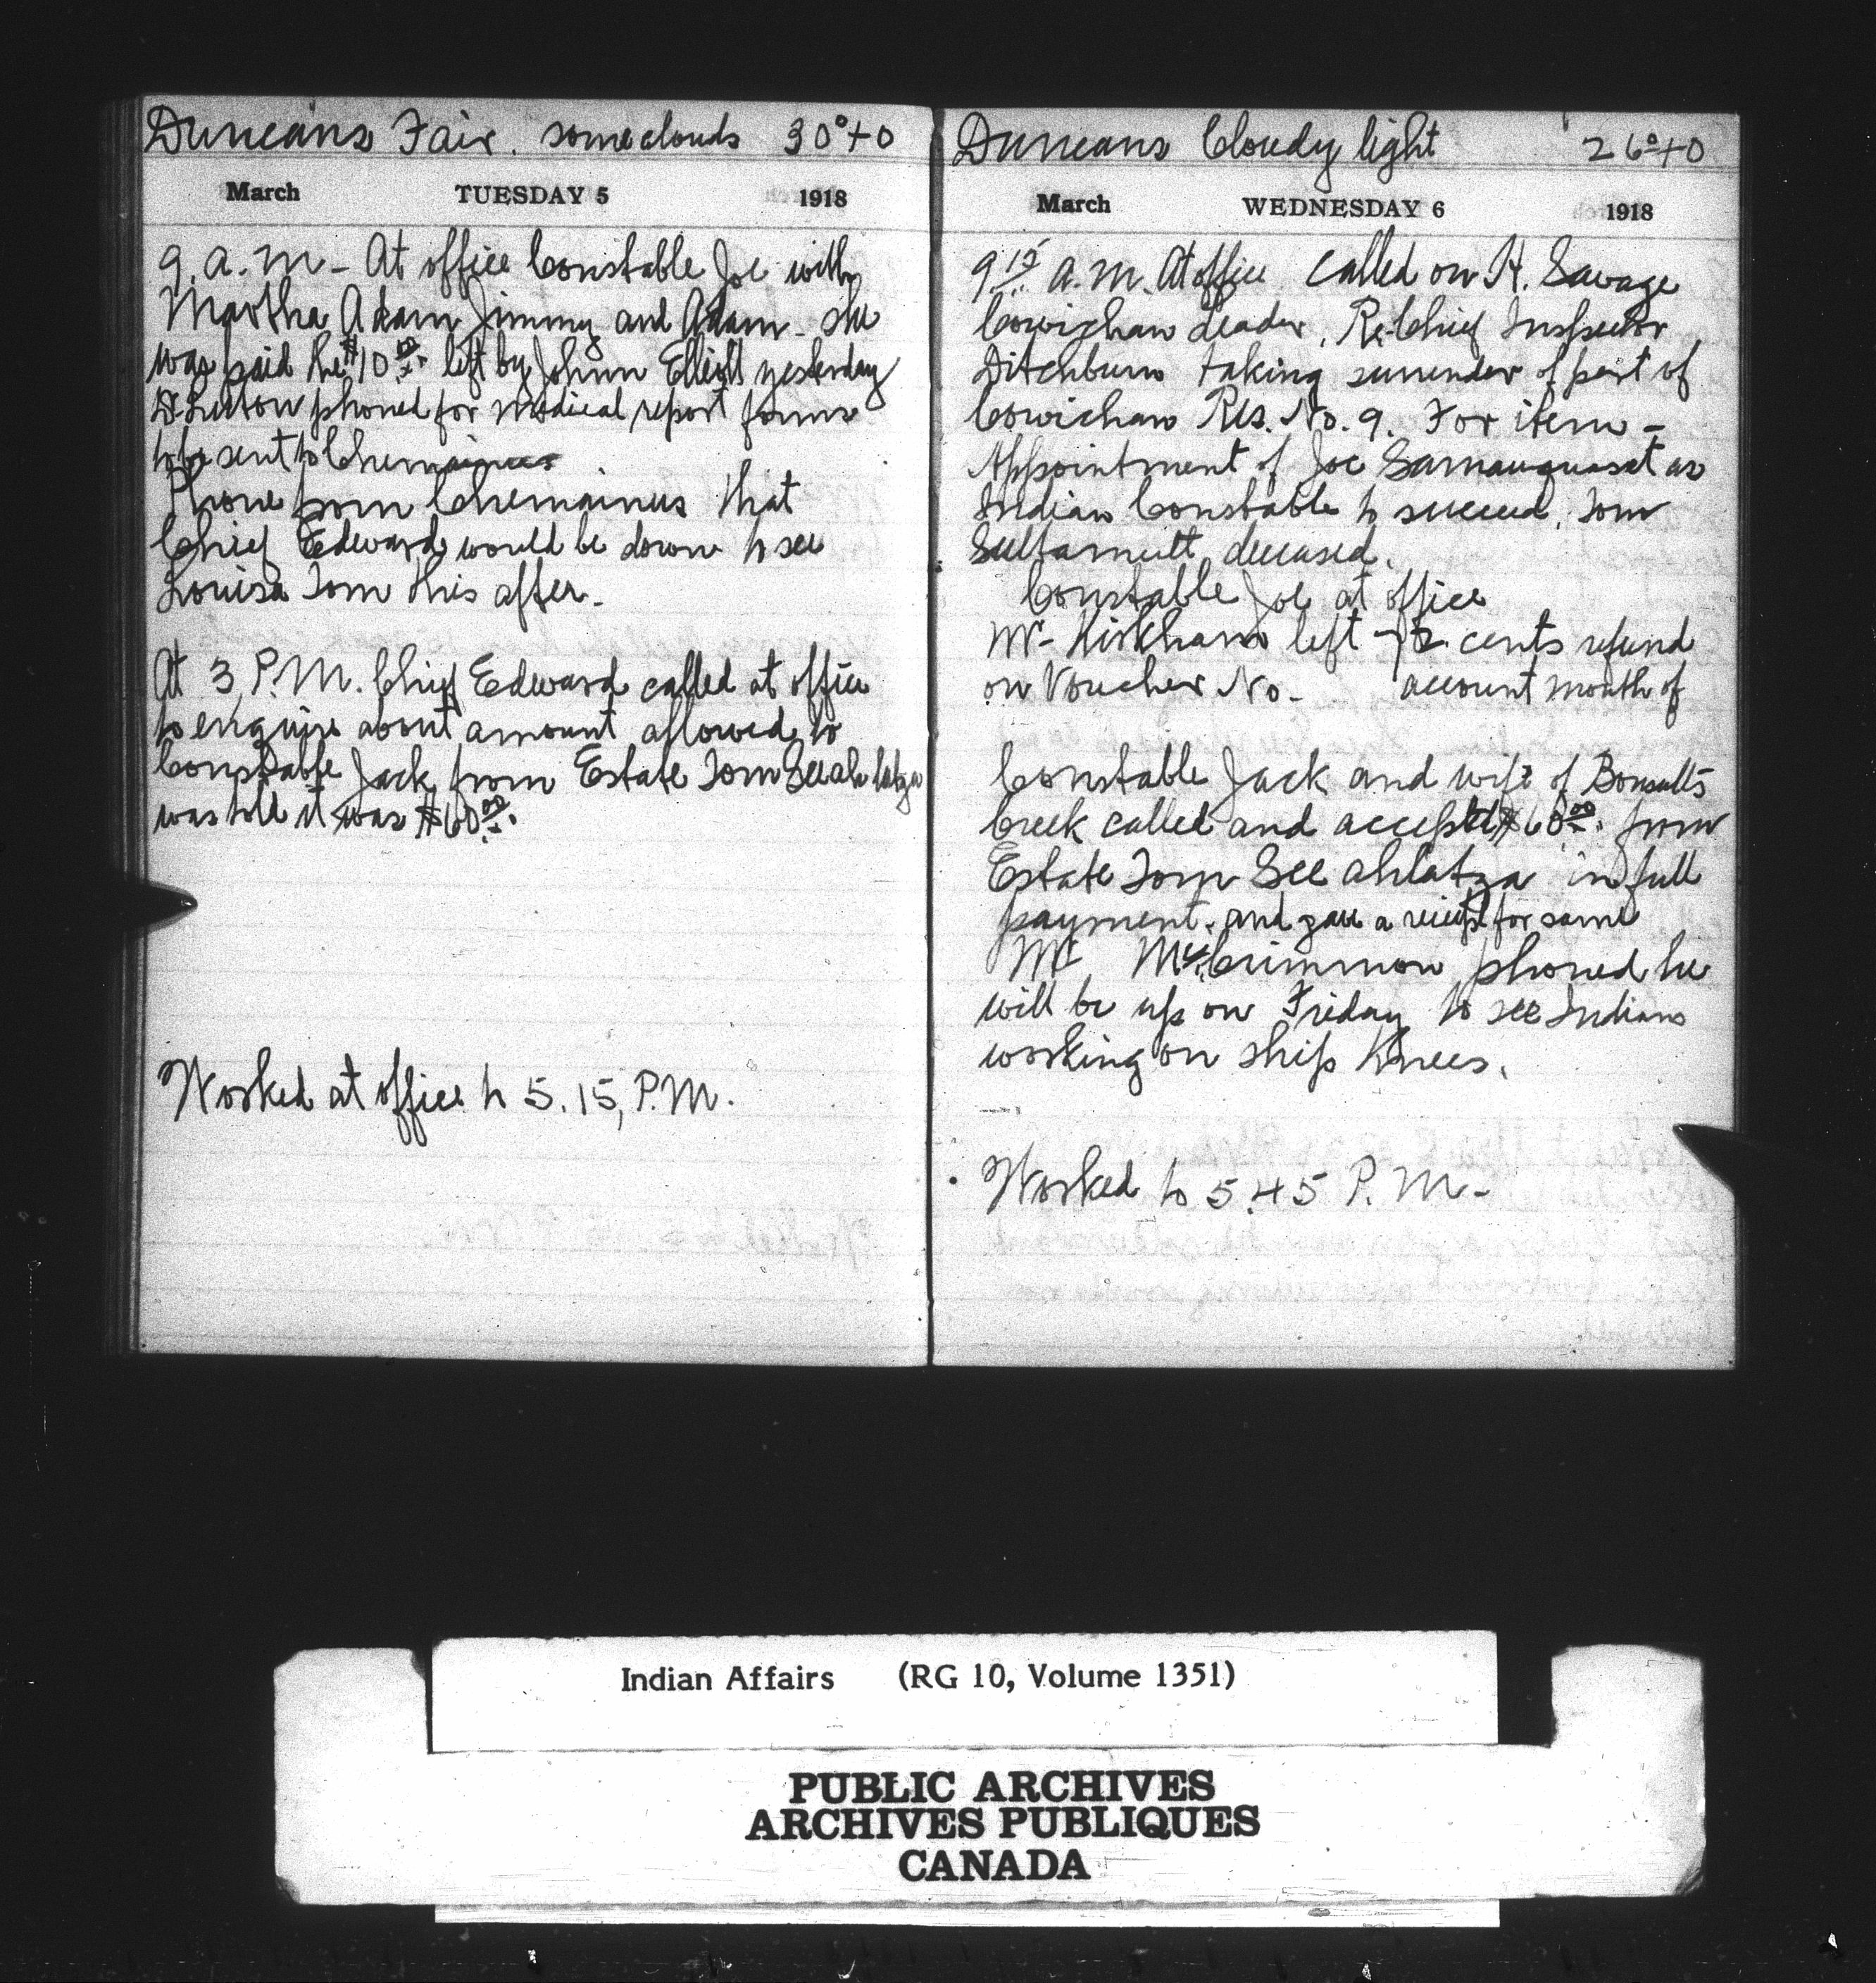 Duncans Fair. some clouds 30°+0
March TUESDAY 5 1918
9. a.m - At office Constable Joe with
Martha Adam Jimmy and Adam - she
was paid the $10.00 left by Johnn Elliott yesterday
Dr phoned for medical report forms
to be sent to Chemainus
Phone from Chemainus that
Chief Edward would be down to see
Louisa Tom this after.
At 3, P.M. Chief Edward called at office
to enquire about amount allowed to
Constable Jack from Estate Tom See ah latza
was told it was $60.00.
Worked at office to 5.15, P.M.
Duncans Cloudy light 26°+0
March WEDNESDAY 6 1918
9 15 a.m. At office called on H. Savage
Cowichan Leader, Re. Chief Inspector
Ditchburn taking surrender of part of
Cowichan Res. No. 9. For item -
Appointment of Joe as
Indian Constable to succeed, Tom
deceased.
Constable Joe at office
Mr. Kirkham left 72 cents refund
on Voucher No. account month of
Constable Jack and wife of Bonsalls
Creek called and accepted $60.00. from
Estate Tom See ahlatza in full
payment. and gave a reciept for same
Mr McCrimmon phoned he
will be up on Friday to see Indians
working on ship Knees.
Worked to 5.45 P.M-
Indian Affairs (RG 10, Volume 1351)
PUBLIC ARCHIVES
ARCHIVES PUBLIQUES
CANADA